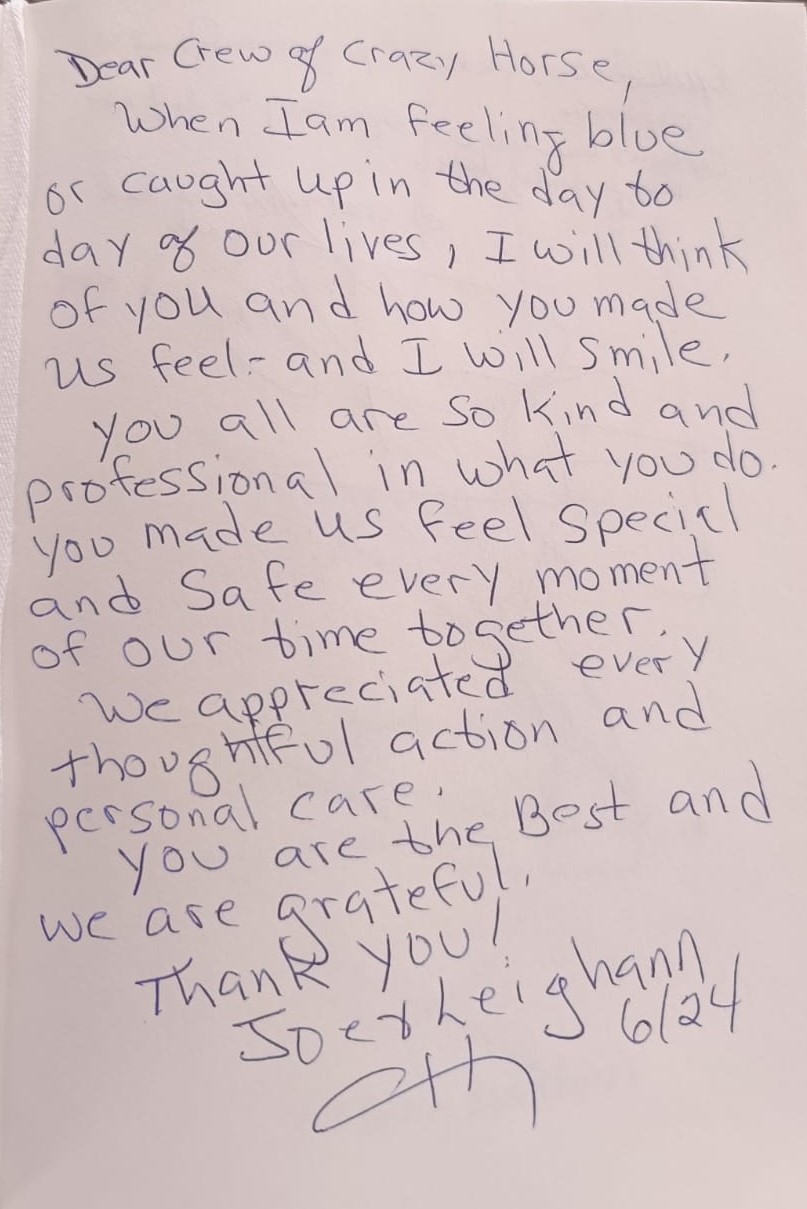 Dear Crew of Crazy Horse,
When I am feeling blue
or caught up in the day to
day of our lives, I will think
of you and how you made
us feel - and I will smile.
you all are so kind and
professional in what you do.
you made us feel special
and safe every moment
of our time together.
We appreciated every
thoughtful action and
personal care.
you are the Best and
we are grateful.
Thank you!
Joe & Leighann
6/24